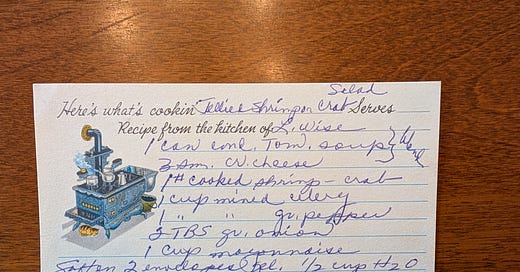 Salad
Here's what's cookin' Jellied Shrimp or Crab Serves
Recipe from the kitchen of L. Wise
1 can cond. Tom. soup } Heat
3 sm. cr. cheese
1# cooked shrimp - crab
1 cup minced celery
1 " " gr. pepper
2 TBS gr. onion
1 cup mayonnaise
Soften 2 envelopes gel. 1/2 cup H2O